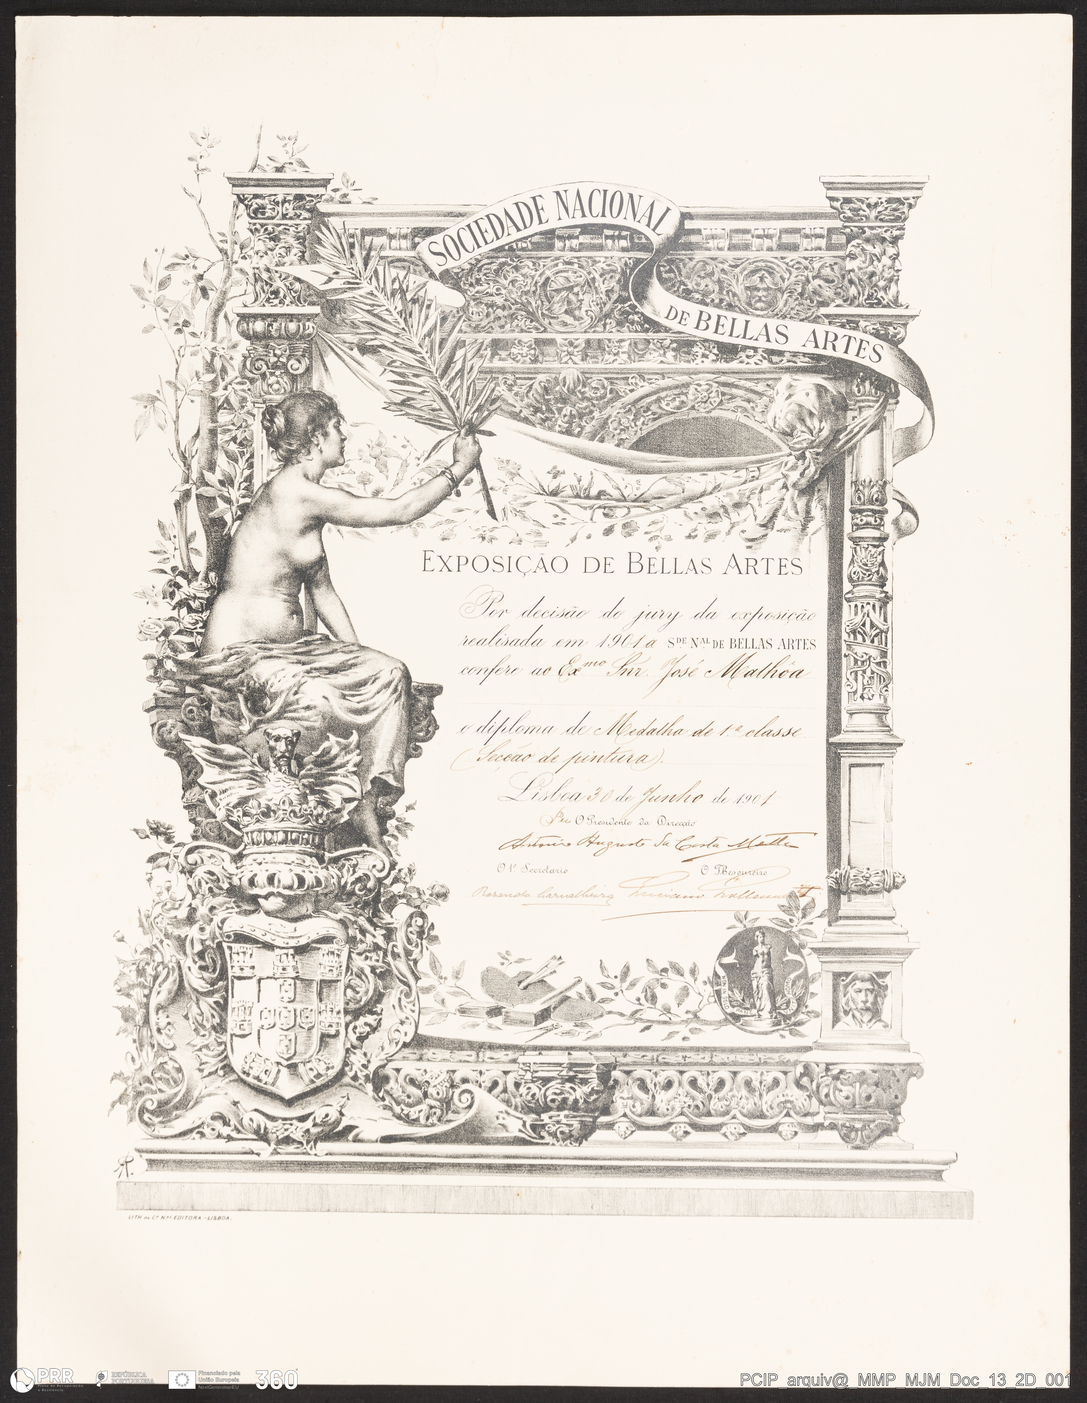 SOCIEDADE NACIONAL
DE BELLAS ARTES
EXPOSIÇÃO DE BELLAS ARTES
Por decisão do jury da exposição
realisada em 1901 a SDE NAL DE BELLAS ARTES
confere ao Exmo Snr. José Malhôa
o diploma de Medalha de 1.ª classe
(Secção de pintura).
Lisboa 30 de Junho de 1901
O Presidente da Direcção
Antonio Augusto da Costa Motta
O 1º Secretario O Thesoureiro
Rozendo Carvalheira
LITH DA Cª Nªl EDITORA - LISBOA.
PRR
REPÚBLICA
PORTUGUESA
Financiado pela
União Europeia
NextGenerationEU
360
PCIP_arquiv@_MMP_MJM_Doc_13_2D_001